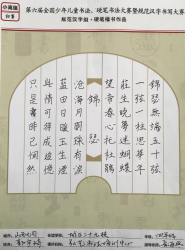 第六届全国少年儿童书法、硬笔书法大赛暨规范汉字书写大赛
规范汉字组·硬笔楷书作品
錦瑟無端五十弦
一弦一柱思華年
莊生曉夢迷蝴蝶
望帝春心托杜鵑
錦瑟
滄海月明珠有淚
藍田日暖玉生煙
此情可待成追憶
只是當時已惘然